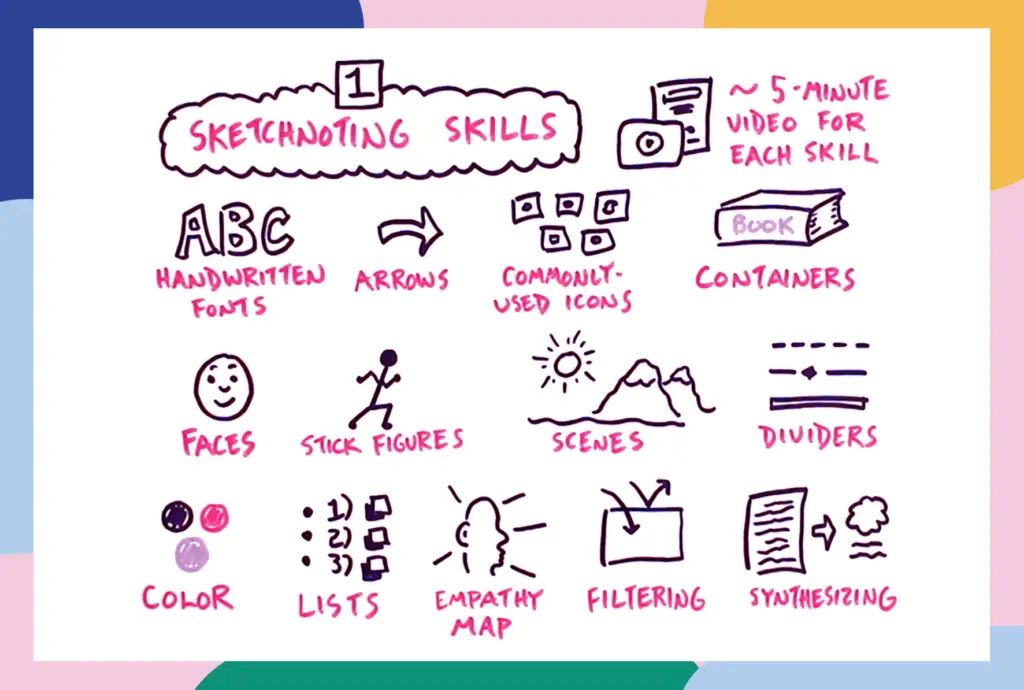 1
SKETCHNOTING SKILLS
~ 5-MINUTE
VIDEO FOR
EACH SKILL
ABC
HANDWRITTEN
FONTS
ARROWS
COMMONLY-
USED ICONS
BOOK
CONTAINERS
FACES
STICK FIGURES
SCENES
DIVIDERS
COLOR
• 1)
• 2)
• 3)
LISTS
EMPATHY
MAP
FILTERING
SYNTHESIZING